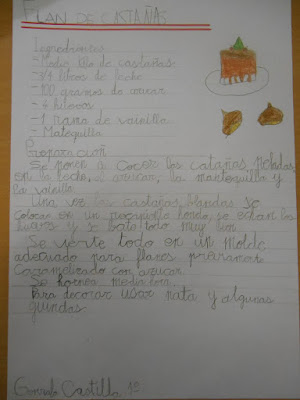 FLAN DE CASTAÑAS
Ingredientes
- Medio kilo de castañas
- 3/4 litros de leche
- 100 gramos de azucar
- 4 huevos
- 1 rama de vainilla
- Matequilla
Preparación
Se ponce a cocer las catañas peladas
en la leche, el azucar, la mantequilla y
la vainilla.
Una vez las castañas blandas se
colocar en un recipiente hondo, se echan los
huevos y se bate todo muy bien
Se vierte todo en un molde
adecuado para flanes previament
caramelizado con azucar.
Se hornea media hora
Para decorar usar nata y algunas
guindas
Gonzalo Castilla 1º